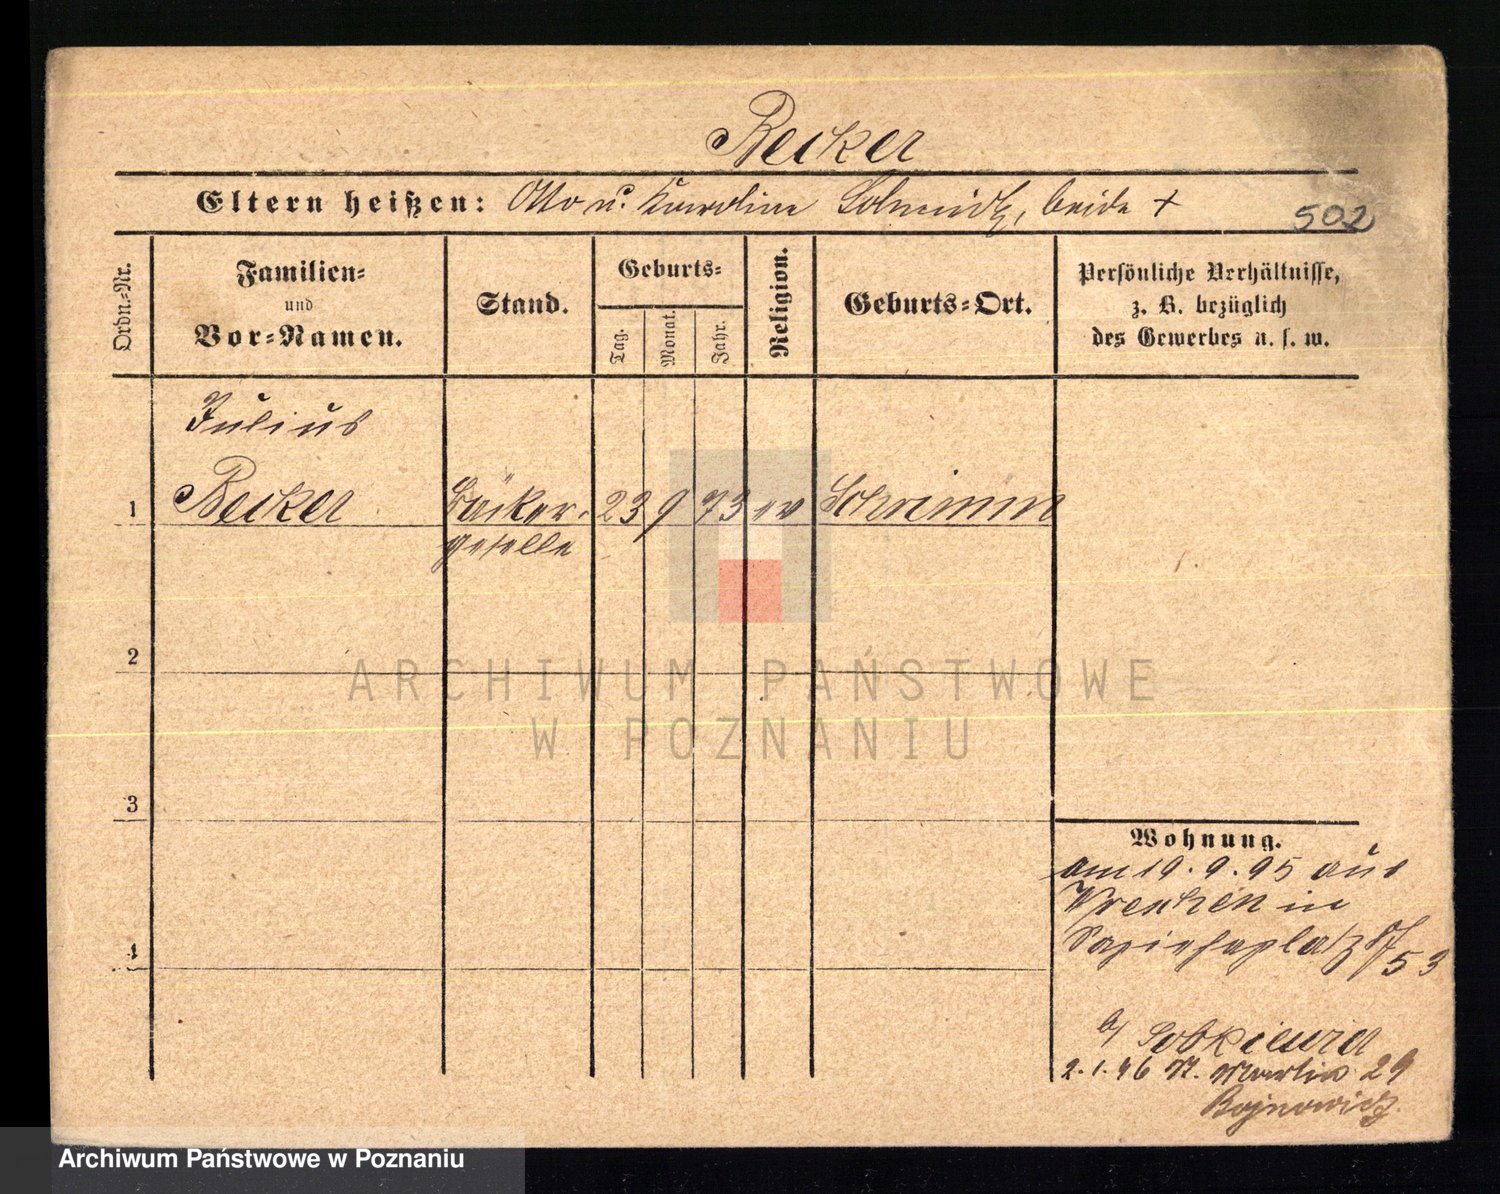 Becker
Eltern heißen: Otto u. Karoline Schmidt, beide +
502
Ordn.-Nr.
Familien-
und
Vor-Namen.
Stand.
Geburts-
Tag.
Monat.
Jahr.
Religion.
Geburts-Ort.
Persönliche Verhältnisse,
z. B. bezüglich
des Gewerbes u. s. w.
Julius
1 Becker Bäcker- 23 9 73 ev Schrimm
geselle
2
3
4
Wohnung.
am 19. 9. 95 aus
Wreschen in
Sapiehaplatz
53
b/
2. 1. 96 St. Martin 29
ARCHIWUM PAŃSTWOWE
W POZNANIU
Archiwum Państwowe w Poznaniu